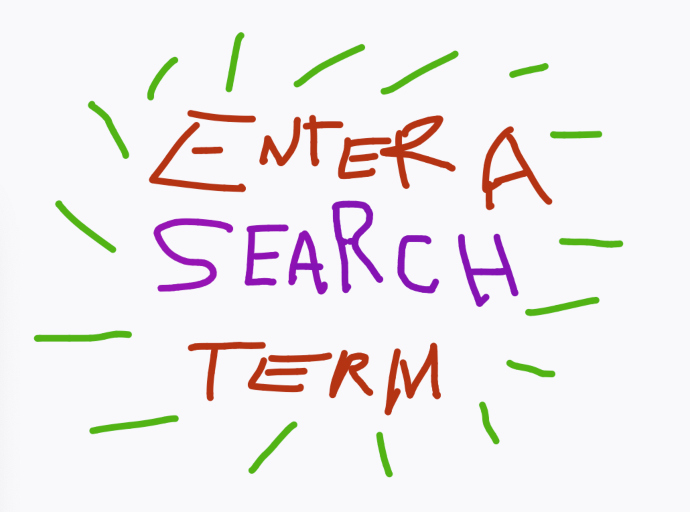 ENTER A
SEARCH
TERM